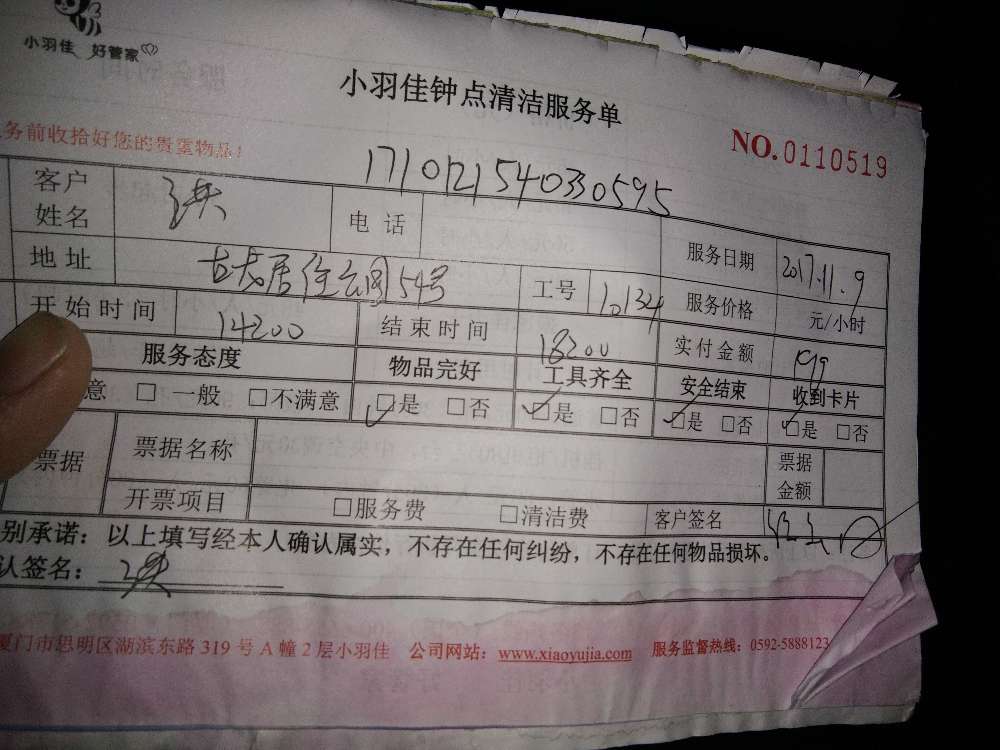 小羽佳 好管家
小羽佳钟点清洁服务单
务前收拾好您的贵重物品！
NO.0110519
171012154030595
客户姓名 洪 电话 服务日期 2017.11.9
地址 古龙居住公园54号 工号 10134 服务价格 元/小时
开始时间 14:00 结束时间 18:00 实付金额
服务态度 物品完好 工具齐全 安全结束 收到卡片
意 □ 一般 □不满意 □是 □否 □是 □否 □是 □否 □是 □否
票据 票据名称 票据金额
开票项目 □服务费 □清洁费 客户签名
别承诺：以上填写经本人确认属实，不存在任何纠纷，不存在任何物品损坏。
认签名： 洪
厦门市思明区湖滨东路 319 号 A 幢 2 层小羽佳 公司网站：www.xiaoyujia.com 服务监督热线：0592-5888123